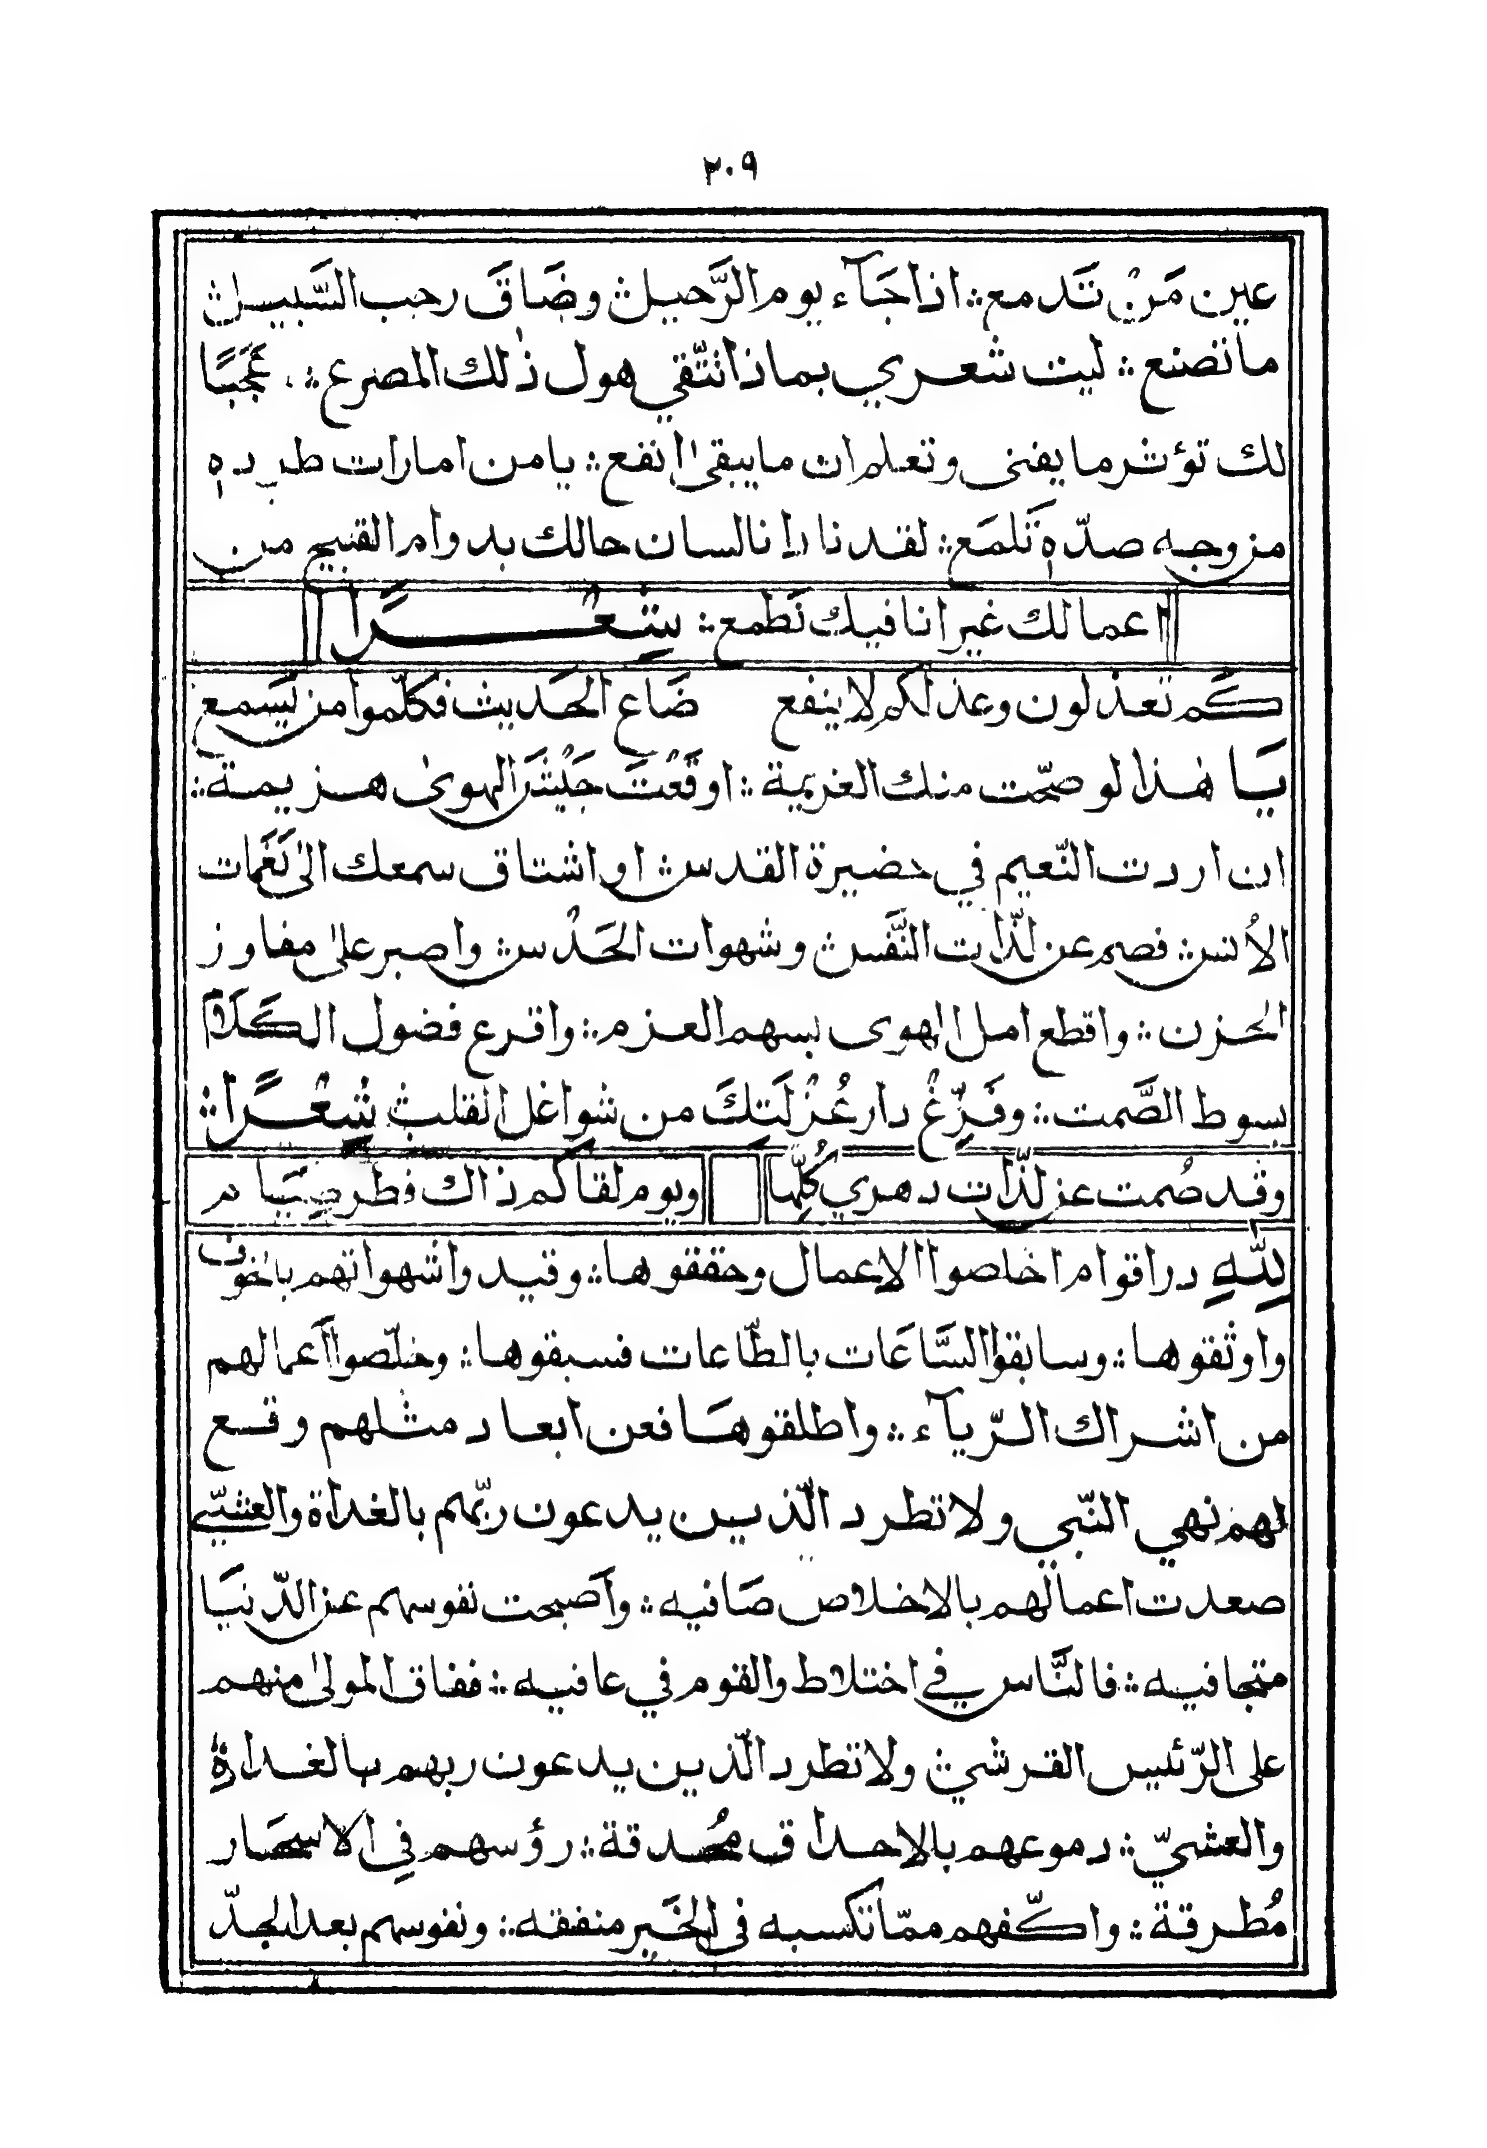 ٢٠٩
عين مَنْ تَدمع ؞ اذا جَآء يوم الرَّحيل ؞ وضَاقَ رحب السَّبيل ؞
ما تصنع ؞ ليت شعري بماذا تتّقي هول ذٰلك المصرع ؞ عَجَبًا
لك تؤثر ما يفنى وتعلم ان ما يبقىٰ انفع ؞ يا من امارات طرده
من وجه صدّه تَلمَع ؞ لقد نادانا لسان حالك بدوام القبيح من
اعمالك غير انا فيك نَطمع ؞ شِعْرًا
كَم تعذلون وعذلكم لا ينفع ضَاع الحَديث فكلّموا من يَسمع
يَا هٰذا لو صحّت منك العزيمة ؞ اوقَعْتَ جَيْشَ الهوىٰ هزيمة ؞
ان اردت النّعيم في حضيرة القدس ؞ او اشتاق سمعك الىٰ نَغَمات
الاُنس ؞ فصم عن لذّات النَّفس ؞ وشهوات الحَدْس ؞ واصبر علىٰ مفاوز
الحزن ؞ واقطع امل الهوى بسهم العزم ؞ واقرع فضول الكَلَام
بسوط الصَّمت ؞ وفَرِّغْ دار عُزْلَتِكَ من شواغل القلب ؞ شِعْرًا ؞
وقد صُمت عن لذّات دهري كُلِّها ويوم لقاكم ذاك فطر صِيَام
لِلّٰهِ در اقوام اخلصوا الاعمال وحققوها ؞ وقيدوا شهواتهم بالخوف
واوثقوها ؞ وسابقوا السَّاعَات بالطّاعات فسبقوها ؞ وخلّصوا أعمالهم
من اشراك الرّيآء ؞ واطلقوهَا فعن ابعاد مثلهم وقع
لهم نهي النّبي ولا تطرد الّذين يدعون ربّهم بالغداة والعشيّ
صعدت اعمالهم بالاخلاص صَافيه ؞ وأصبحت نفوسهم عن الدّنيَا
متجافيه ؞ فالنَّاس في اختلاط والقوم في عافيه ؞ ففاق المولىٰ منهم
على الرّئيس القرشي ؞ ولا تطرد الّذين يدعون ربهم بالغداة
والعشيّ ؞ دموعهم بالاحداق مُحدقة ؞ رؤسهم في الاسحَار
مُطرقة ؞ واكّفهم ممّا تكسبه في الخَير منفقه ؞ ونفوسهم بعد الجدّ